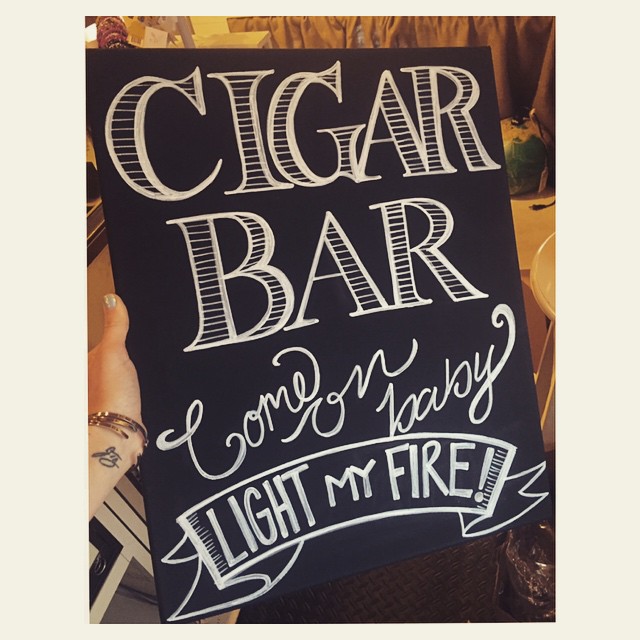 CIGAR
BAR
Come on baby
LIGHT MY FIRE!